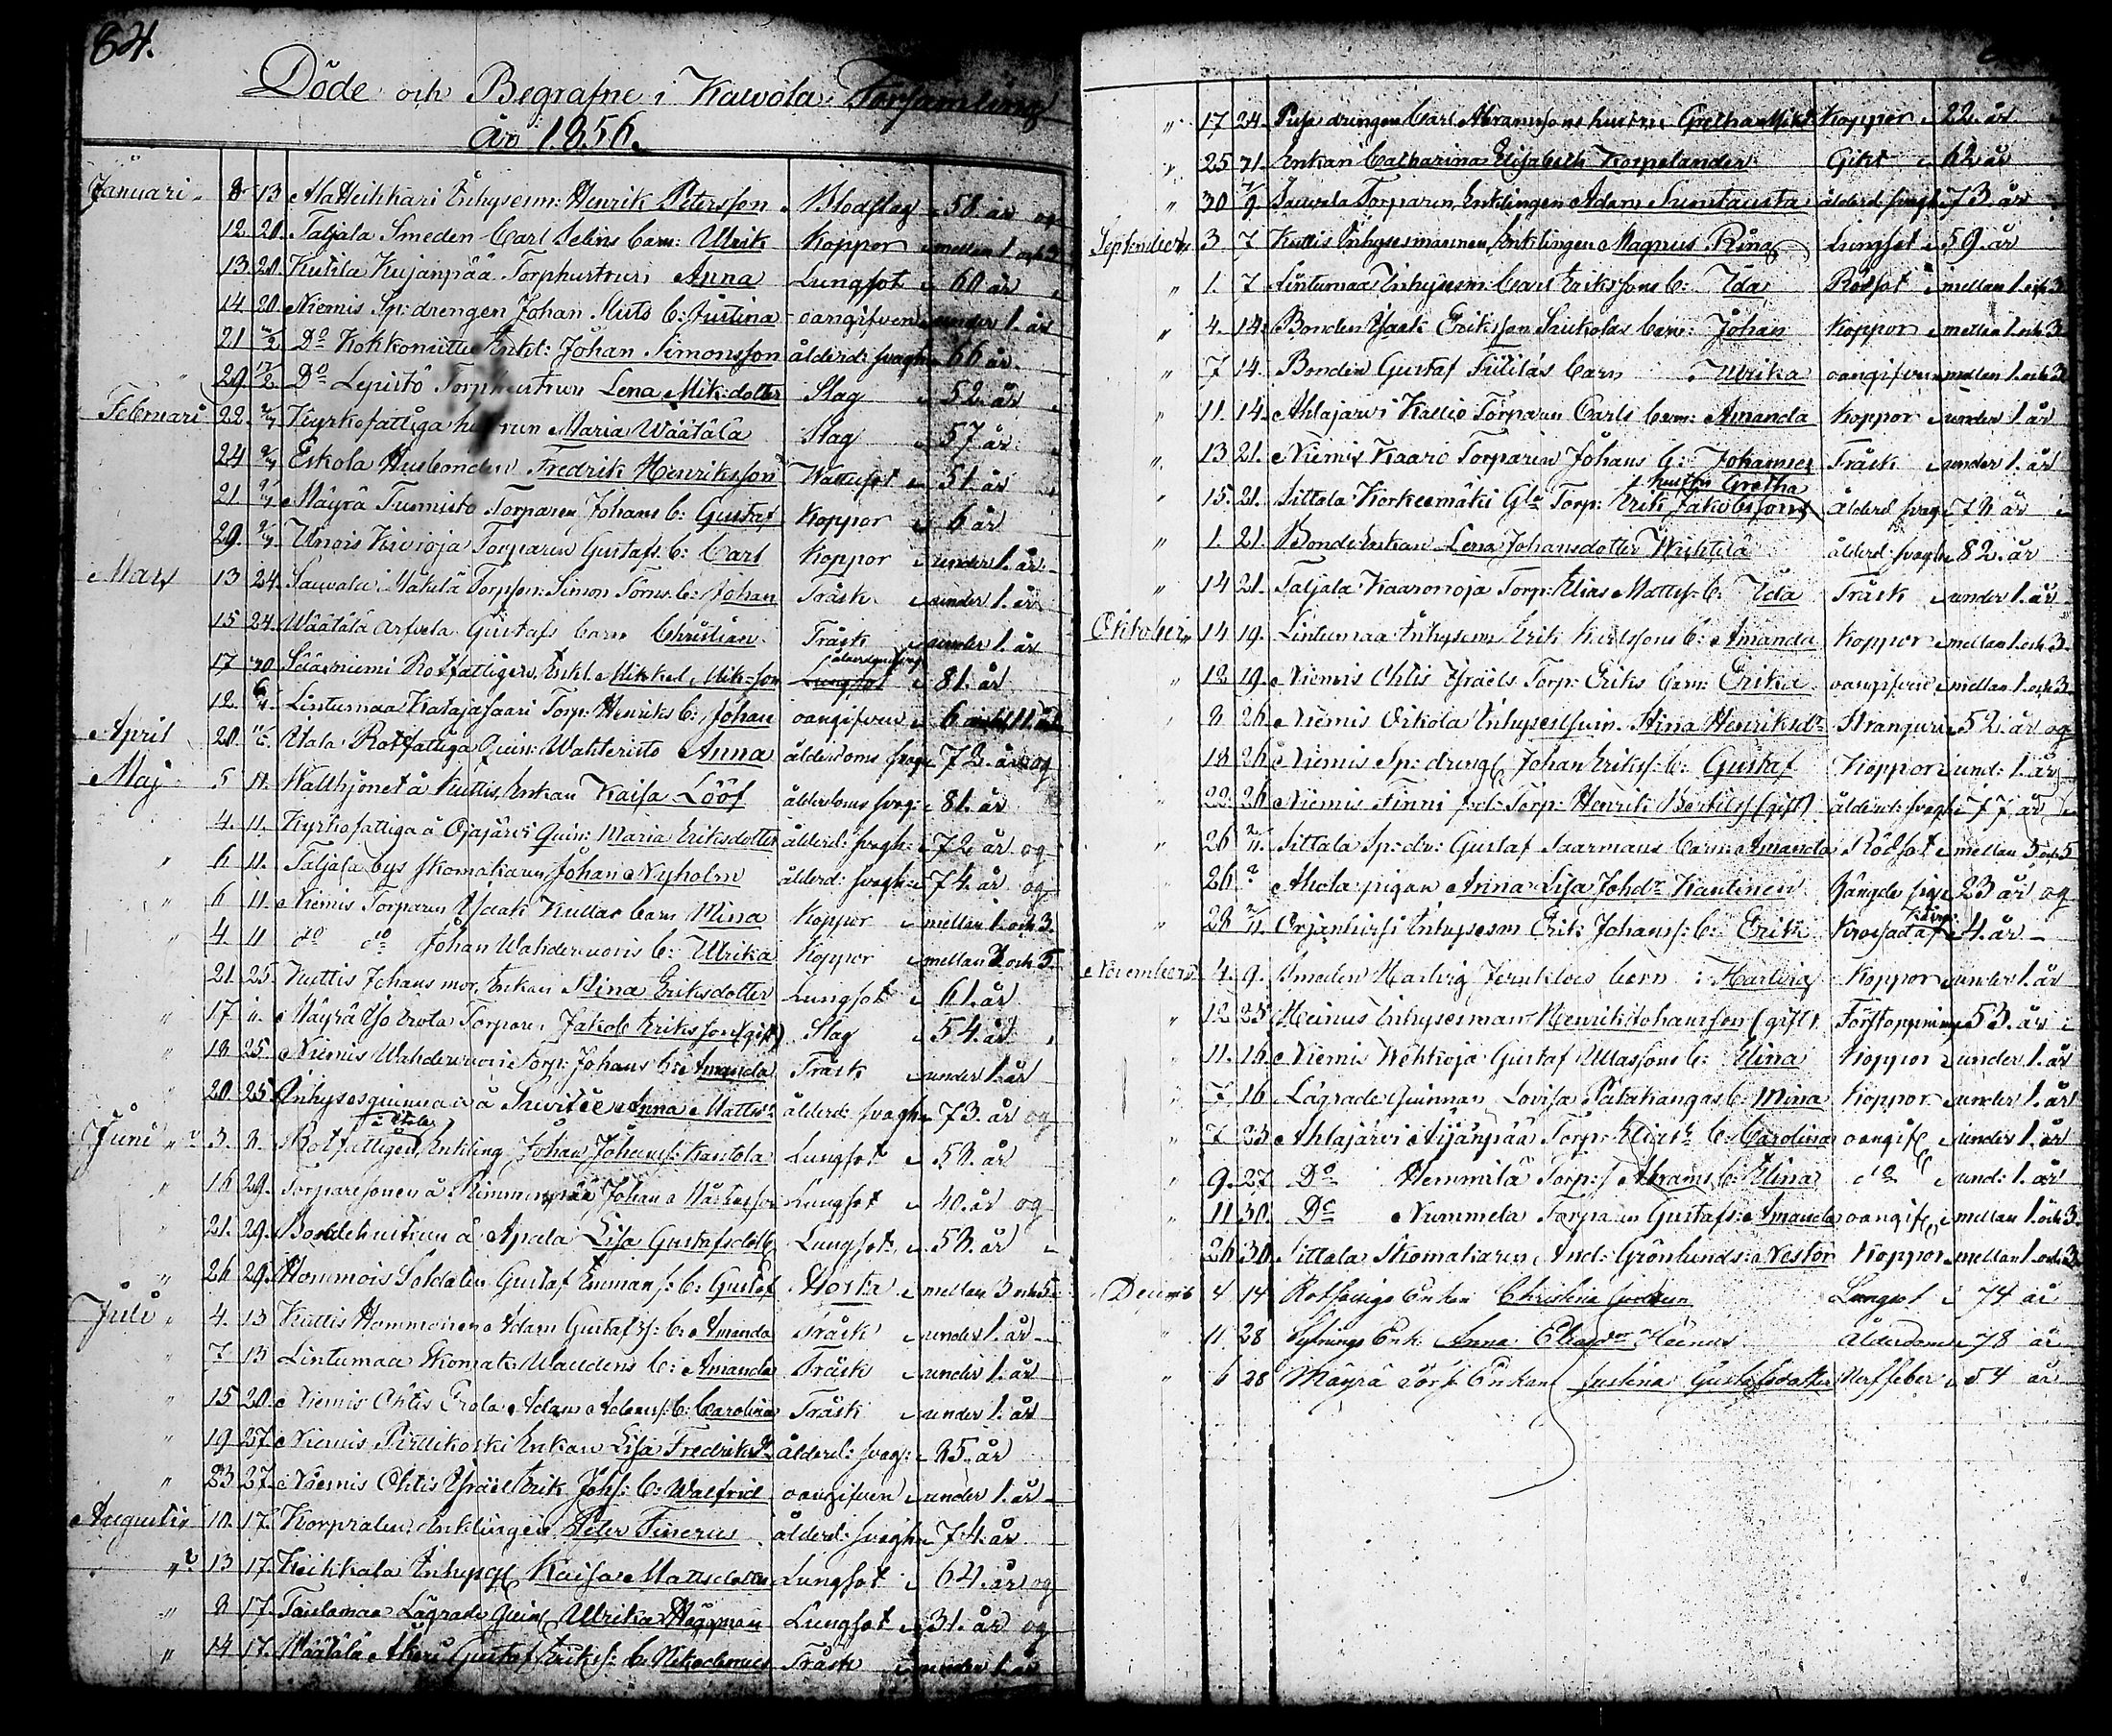 84.
Döde och Begrafne i Kalvola Församling
År 1856.
Januari 8 13 Heikkari Inhysesm: Henrik Petersson Blodslag 58 år og
12 20. Taljala Smeden Carl Selins barn: Ulrik Koppor mellan 1 och 3
13 20 Kutila Kujanpää Torphustrun Anna Lungsot 60 år
14 20 Niemis Sp: drengen Johan Sluts b: Justina oangifven under 1. år
21 Do Kokkomitti Enkl: Johan Simonsson ålderd: svagh 66 år.
29 Do Lepistö Torphustrun Lena Mik:dotter Slag 52. år
Februari 22. Kyrkofattiga hustrun Maria Wäätälä Slag 57 år.
24 Eskola Husbonden Fredrik Henriksson Wattusot 51. år
21 Mäyrä Tumisto Torparen Johans b: Gustaf Koppor 6 år
29. Unois Kivioja Torparen Gustafs b: Carl Koppor under 1. år
Mars 13 24. Sauvala Mäkilä Torpson: Simon Törns b: Johan Tråsk under 1. år
15 24. Wäätälä Arfvela Gustafs barn Christian Tråsk under 1. år
17 Sääxniemi Rotfattigen, Enkl. Mikkel Mik=son Lungsot 81. år
12. Lintumaa Katajasaari Torp: Henriks b: Johan oangifven 6
April 20. Rotfattiga Quin: Wahteristo Anna ålderdoms svag 72. år og
Maj 5 11. Wallhjonet å Kuttis, Enkan Kaisa Lööf ålderdoms svag: 81. år
4. 11. Kyrkofattiga å Ojajärvi Quin: Maria Eriksdotter ålderd: svagh: 72 år og
" 6 11. Taljala bys skomakaren Johan Nyholm ålderd: svagh: 74. år og
" 6 11. Niemis Torparen Isaak Kullas barn Mina Koppor mellan 1. och 3.
" 4. 11 do do Johan Wahdervuoris b: Ulrika Koppor mellan 3 och 5.
21. 25. Kuttis Johans mor, Enkan Stina Eriksdotter Lungsot 61. år
" 17 Mäyrä Torparen Jakob Eriksson (gift) Slag 54. år
" 18 25. Niemis Wahdervuori Torp: Johans b: Amanda Tråsk under 1. år
20 25. Inhysesquinnan å Anna Mattsdr ålderd: svagh 73. år og
Juni 3. 8. Rotfattigen, Enkling Johan Johanss: Kantola Lungsot 58. år
" 16 29. Torparesonen å Rimminpää Johan Lungsot 40. år og
21. 29. Bondehustrun å Apala Lisa Gustafsdotter Lungsot 58. år
" 26 29. Hommois Soldaten Gustaf Enman s: b: Gustaf Hosta mellan 3 och 5
Juli 4. 13 Kuttis Hommoinen Adam Gustafs: b: Amanda Tråsk under 1. år
7 13 Lintumaa Skomak: Walldens b: Amanda Tråsk under 1. år
15 20. Niemis Ohtis Erola Adam Adams: b: Carolina Tråsk under 1. år
19 27. Niemis Pirttikoski Enkan Lisa Fredriksdr ålderd: svag: 85. år
" 23 27. Niemis Ohtis Israel Erik Johs: b: Walfrid oangifven under 1. år
Augusti 10. 17. Korpralen, Enklingen Peter Finerus ålderd: svagh 74. år
13 17. Keikkala Inhysq Kaisa Mattsdotter Lungsot 64. år og
" 8 17. Taulamaa Lägrade quin: Ulrika Häggman Lungsot 31. år og
" 14 17. Wäätälä Gustaf Eriks: b: Nikodemus Tråsk under 1. år
" 17 24. Pusa drengen Carl Abramssons hustru Gretha Koppor 22. år
" 25 31. Enkan Catharina Elisabeth Korpelander Gikt 62 år
" 30 7/9 Sauvala Torparen, Enklingen Adam Suntausta ålderd: svagh 73. år
September 3 7 Kuttis Inhysesmannen, Enklingen Magnus Ring Lungsot 59. år
" 1. 7 Lintumaa Inhysesm: Carl Erikssons b: Ida Rödsot mellan 1. och 3
" 4. 14. Bonden Isaak Eriksson Saukolas barn: Johan Koppor mellan 1. och 3
" 7 14. Bonden Gustaf barn Ulrika oangifven mellan 1. och 3
" 11. 14. Ahlajärvi Kallio Torparen Carls barn: Amanda Koppor under 1. år
" 13 21. Niemis Kaario Torparen Johans b: Johannes Tråsk under 1. år
hustru Gretha
" 15. 21. Sittala Korkeemäki Gla Torp: Erik Jakobssons ålderd svag 78 år
" 1. 21. Bonde Enkan Lena Johansdotter Wichtilä ålderd: svagh 82. år
" 14 21. Taljala Kaaronoja Torp: Elias Matts: b: Ida Tråsk under 1. år
Oktober 14 19. Lintumaa Inhysesm Erik Karlssons b: Amanda Koppor mellan 1. och 3.
" 12 19. Niemis Ohtis Israels Torp: Eriks barn: Erika oangifven mellan 1. och 3
8 26. Niemis Erkola Inhysesquin. Stina Henriksdr Stranguri 52. år og
18 26 Niemis Sp: dreng Johan Eriks: b: Gustaf Koppor und: 1. år
22. 26 Niemis Finni Torp: Henrik Bertils: (gift) ålderd: svagh 77 år
26 2/11 Sittala Sp: dr: Gustaf Saarmans barn Amanda Rödsot mellan 3 och 5
26 2 Ahola pigan Anna Lisa Johdr Kantinen 23 år og
28 2/11 Orjanhirsi Inhysesm Erik Johans: b: Erik 4. år
November 4. 9. Smeden Hartvig barn: Hartvig Koppor under 1. år
" 12 Heinus Inhysesman Henrik Johansson (gift) Förstoppning 53. år
11. 16. Niemis Wehkoja Gustaf b: Elina Koppor under 1. år
7 16 Lägrade Quinnan Lovisa Patakangas b: Mina Koppor under 1. år
" 7 23 Ahlajärvi Äijänpää Torp: b: Carolina oangif under 1. år
" 9. 27 Do Hemmilä Torp: Abrams b: Elina do und: 1. år
" 11 30. Do Nummela Torparen Gustafs: Amanda oangif mellan 1. och 3.
26 30 Sittala Skomakaren And: Grönlunds: Nestor Koppor mellan 1. och 3
Decemb 4 14 Rotfattiga Enkan Christina Lungsot 74 år
" 11. 28 Sytnings Enk: Anna Eliasdr Heinus Ålderdom 78 år
" 6 28 Mäyrä Torp Enkan Justina Gustafsdotter Nerffeber 54 år